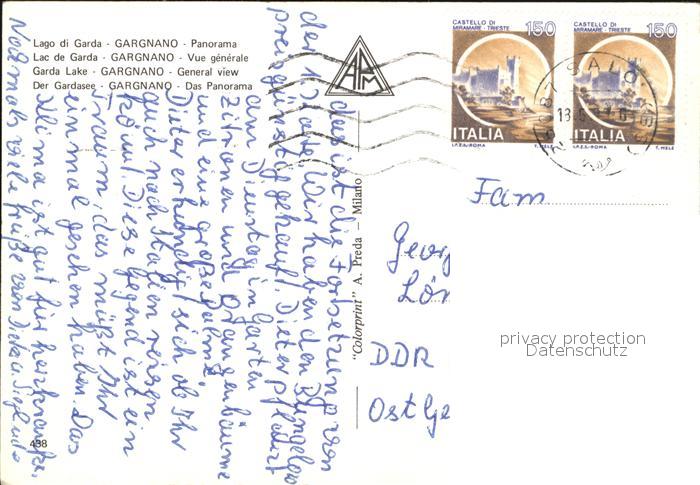 CASTELLO DI
MIRAMARE - TRIESTE
150
CASTELLO DI
MIRAMARE - TRIESTE
150
ITALIA
ITALIA
I.P.Z.S.-ROMA
T. MELE
I.P.Z.S.-ROMA
T. MELE
Lago di Garda - GARGNANO - Panorama
Lac de Garda - GARGNANO - Vue générale
Garda Lake - GARGNANO - General view
Der Gardasee - GARGNANO - Das Panorama
APM
"Colorprint" A. Preda - Milano
438
das ist die Fortsetzung von
der 1. Karte. Wir haben den Bungelow
preisgünstig gekauft. Dieter pflanzt
am Dienstag in Garten
Zitronen und Orangenbäume
und eine große Palme
Dieter erkundigt sich ob Ihr
auch nach Italien reisen
könnt. Diese Gegend ist ein
Traum, das müßt Ihr
einmal gesehen haben. Das
Klima ist gut für herzkranke.
Nochmals viele Grüße von
Fam
Geor
Lön
DDR
Ost Ge
privacy protection
Datenschutz